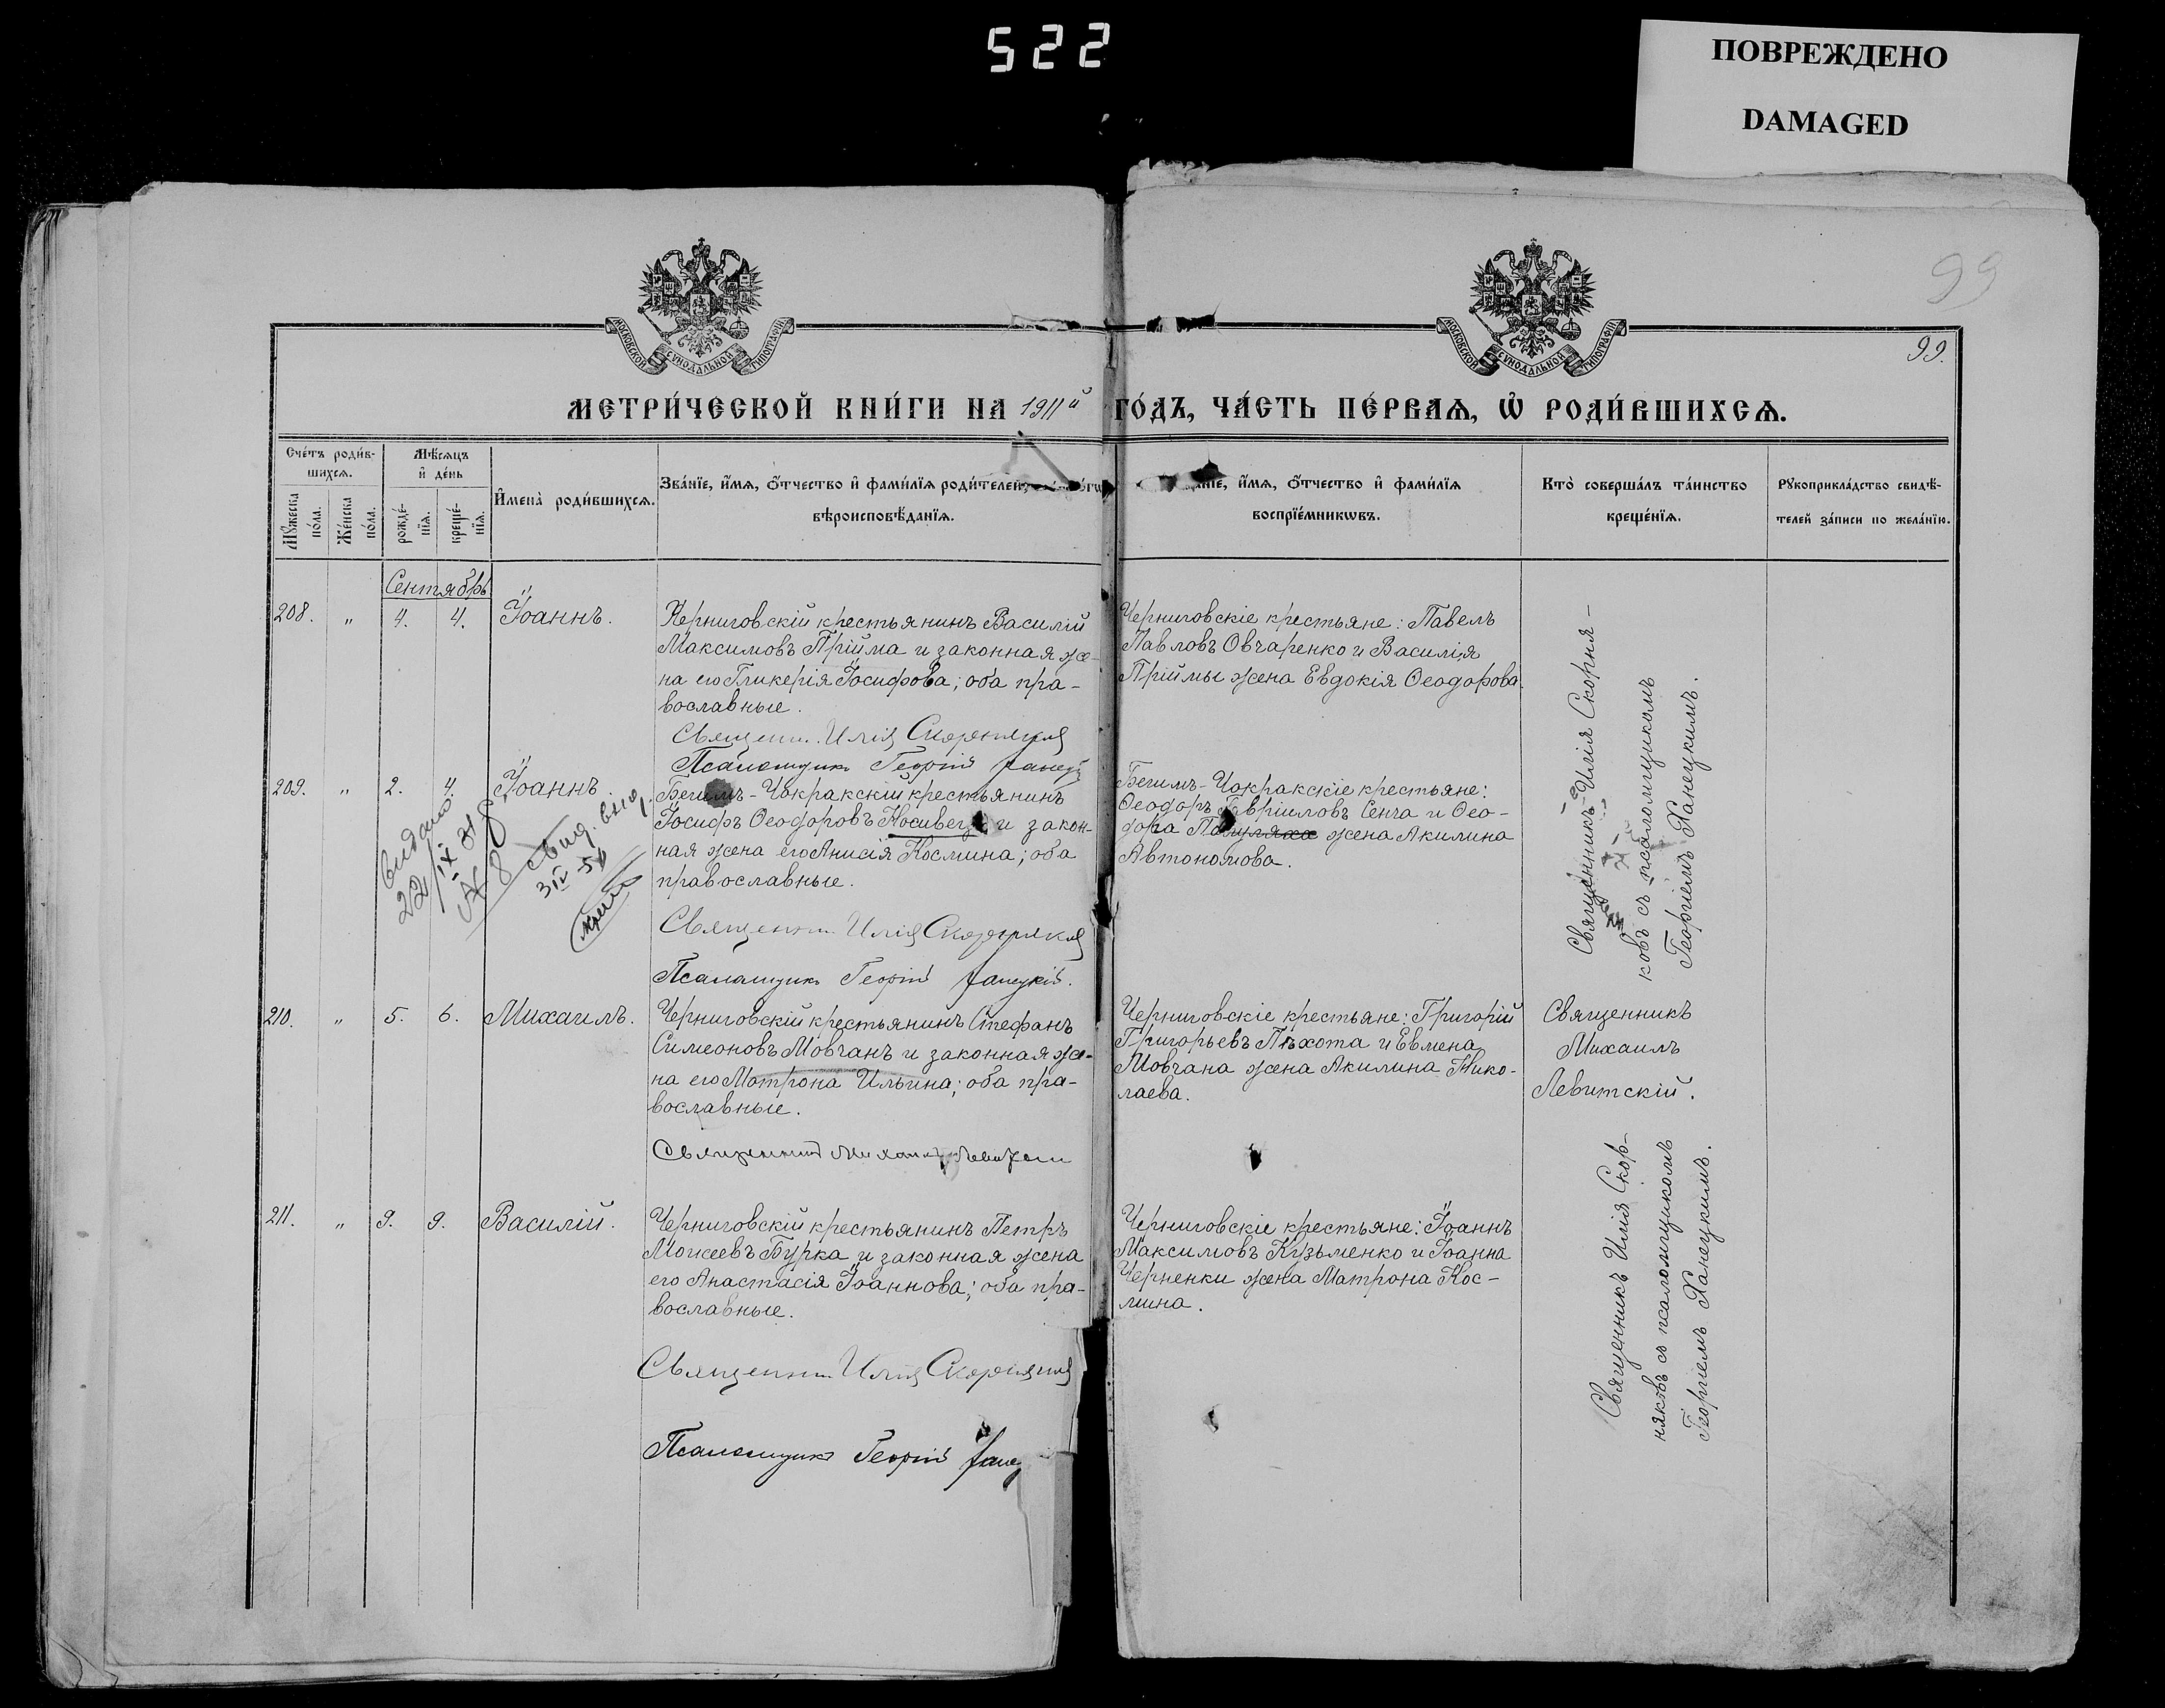 522
ПОВРЕЖДЕНО
DAMAGED
99
99.
МОСКОВСКОЙ СѴНОДАЛЬНОЙ ТИПОГРАФІИ
МОСКОВСКОЙ СѴНОДАЛЬНОЙ ТИПОГРАФІИ
МЕТРИ́ЧЕСКОЙ КНИ́ГИ НА 1911й ГО́ДЪ, ЧА́СТЬ ПЕ́РВАѦ, Ѡ҆ РОДИ́ВШИХСѦ.
Сче́тъ роди́в-
шихсѧ.
Мꙋ́жеска по́ла.
Же́нска по́ла.
Мѣ́сѧцъ
и҆ де́нь
рожде́-
нїѧ.
креще́-
нїѧ.
И҆мена̀ роди́вшихсѧ.
Зва́нїе, и҆́мѧ, ѻ҆́тчество и҆ фами́лїѧ роди́телей,
вѣроисповѣ́данїѧ.
и҆́мѧ, ѻ҆́тчество и҆ фами́лїѧ
воспрїе́мникѡвъ.
Кто̀ соверша́лъ та́инство
креще́нїѧ.
Рꙋкоприкла́дство свидѣ́-
телей за́писи по жела́нїю.
Сентябрь
208. " 4. 4. Іоаннъ.
Черниговскій крестьянинъ Василій
Максимовъ Прійма и законная же-
на его Гликерія Іосифова; оба пра-
вославные.
Священ. Илія Скорняков
Псаломщик Георгій Ханец
Черниговскіе крестьяне: Павелъ
Павловъ Овчаренко и Василія
Приймы жена Евдокія Ѳеодорова.
Священникъ Илія Скорня-
ковъ съ псаломщикомъ
Георгіемъ Ханецкимъ.
209. " 2. 4. Іоаннъ.
Выдано
22/IX 31
№ 8
свид. выд.
3 IV 51
Бегимъ-Чокракскій крестьянинъ
Іосифъ Ѳеодоровъ и закон-
ная жена его Анисія Космина; оба
православные.
Священник Илія Скорняков
Псаломщик Георгій Ханецкій.
Бегимъ-Чокракскіе крестьяне:
Ѳеодоръ Гавріиловъ Сенча и Ѳео-
дора жена Акилина
Автономова.
210. " 5. 6. Михаилъ.
Черниговскій крестьянинъ Стефанъ
Симеоновъ Мовчанъ и законная же-
на его Матрона Ильина; оба пра-
вославные.
Священник Михаил Левитскій
Черниговскіе крестьяне: Григорій
Григорьевъ Пѣхота и Евмена
Мовчана жена Акилина Нико-
лаева.
Священникъ
Михаилъ
Левитскій.
211. " 9. 9. Василій.
Черниговскій крестьянинъ Петръ
Моисеевъ Бурка и законная жена
его Анастасія Іоаннова; оба пра-
вославные.
Священник Илія Скорняков
Псаломщик Георгій Ханец
Черниговскіе крестьяне: Іоаннъ
Максимовъ Кузьменко и Іоанна
Черненки жена Матрона Кос-
мина.
Священникъ Илія Скор-
няковъ съ псаломщикомъ
Георгіемъ Ханецкимъ.